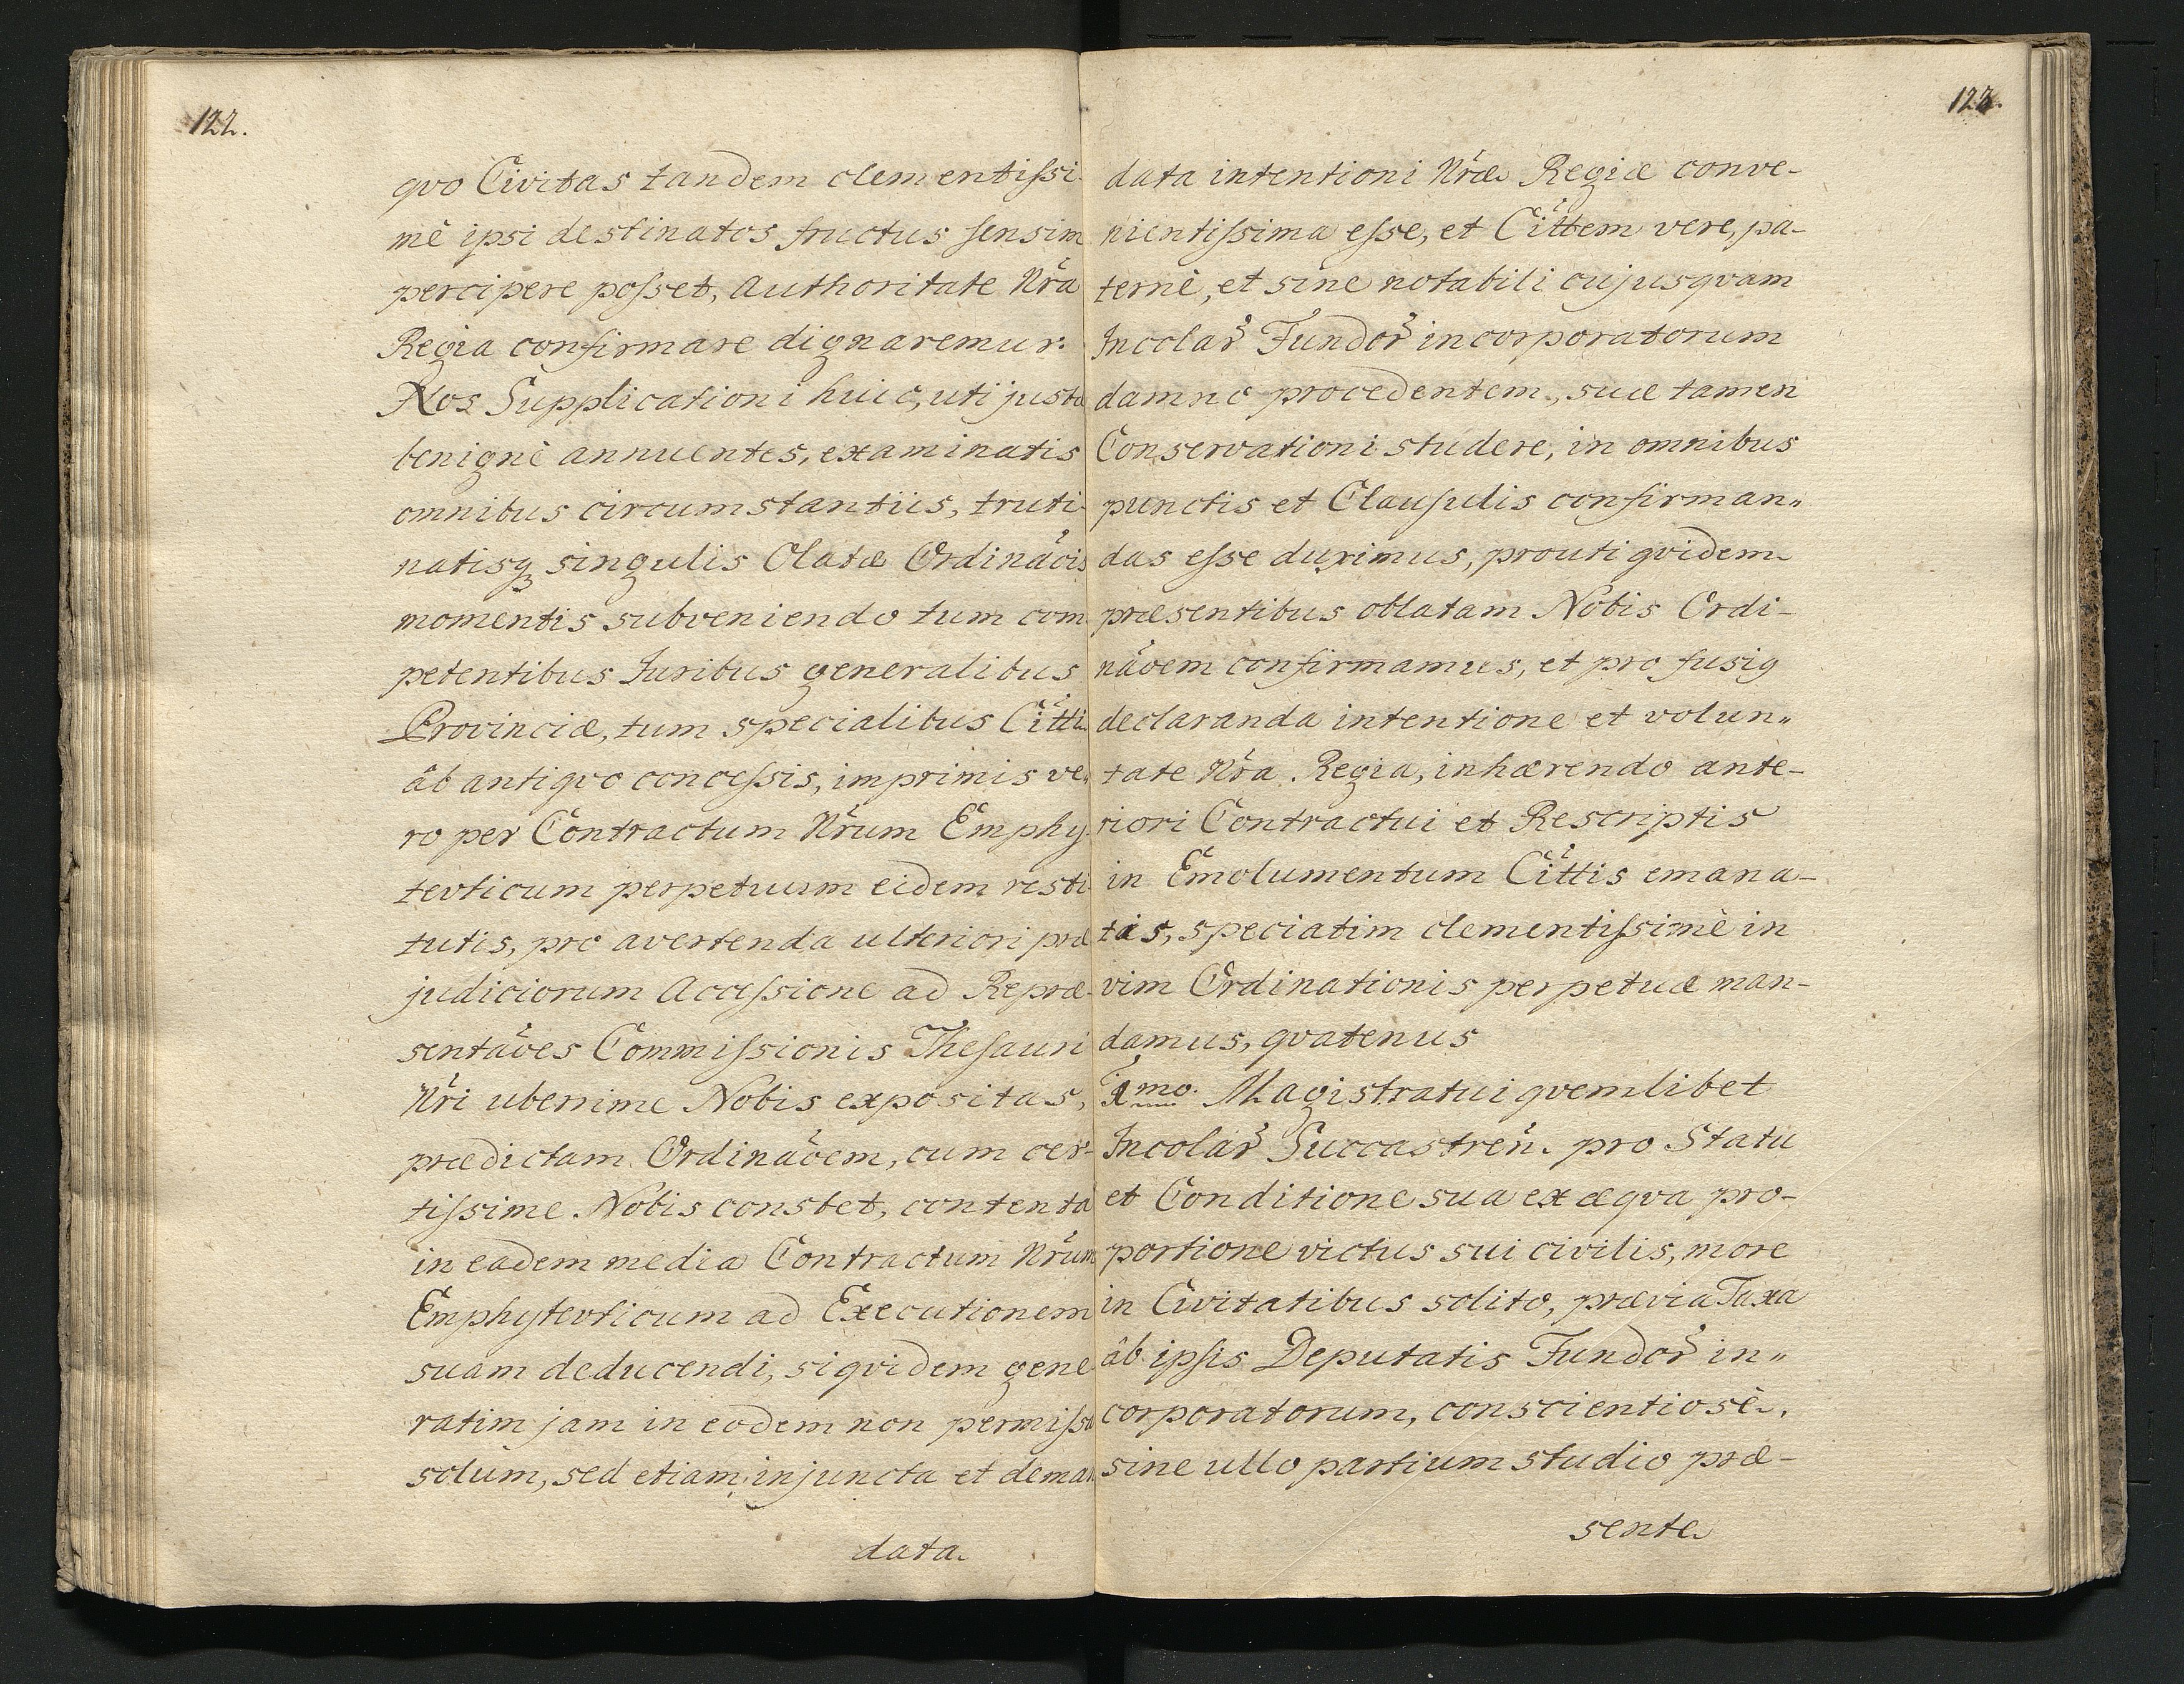 122.
qvo Civitas tandem clementiſsi-
mè ipsi destinatos fructus ſensim
percipere poſset, Authoritate Nr̃a
Regia confirmare dignaremur.
Nos Supplicationi huic, uti justæ
benignè annuentes, examinatis
omnibus circumstantiis, truti-
natisq; singulis Olatæ Ordinãois
momentis subveniendo tum com-
petentibus Juribus generalibus
Provinciæ, tum specialibus Citti
âb antiqvo conceſsis, imprimis ve-
ro per Contractum Nr̃um Emphy-
tevticum perpetuum eidem resti-
tutis, pro avertenda ulteriori præ-
judiciorum Acceſsione ad Repræ-
sentãoes Commiſsionis Theſauri
Nr̃i uberrime Nobis expositas,
prædictam Ordinãoem, cum cer-
tiſsime Nobis constet, contenta
in eadem media Contractum Nr̃um
Emphytevticum ad Executionem
suam deducendi, siqvidem gene-
ratim jam in eodem non permiſsa
solùm, sed etiam injuncta et deman
data.
123.
data intentioni Nr̃æ Regiæ conve-
nientiſsima eſse, et Cittem vere, pa-
ternè, et sine notabili cujusqvam
Incolar̃ Fundor̃ incorporatorum
damno procedentem, suæ tamen
Conservationi studere, in omnibus
punctis et Clauſulis confirman„
das eſse duximus, prouti qvidem
præsentibus oblatam Nobis Ordi-
nãoem confirmamus, et pro fusiq
declaranda intentione et volun„
tate Nr̃a Regia, inhærendo ante-
riori Contractui et Rescriptis
in Emolumentum Cittis emana-
tis, speciatim clementiſsimè in
vim Ordinationis perpetuæ man-
damus, qvatenus
1mo. Magistratui qvemlibet
Incolar̃ Succastreñ. pro Statu
et Conditione sua ex æqva pro-
portione victus sui civilis, more
in Civitatibus solito, prævia Taxa
âb ipſis Deputatis Fundor̃ in„
corporatorum, conscientiosè,
sine ullo partium studio præ-
sente